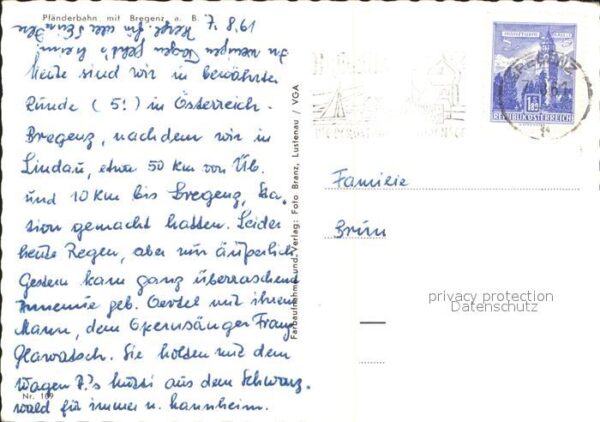 Pfänderbahn mit Bregenz a. B.
7. 8. 61
In wenigen Tagen geht's heim
Heute sind wir in bewährter
Runde (5!) in Österreich -
Bregenz, nachdem wir in
Lindau, etwa 50 km von Üb.
und 10 km bis Bregenz, Sta-
tion gemacht hatten. Leider
heute Regen, aber nur äußerlich
Gestern kam ganz überraschend
Annemie geb. Oertel mit ihrem
Mann, dem Opernsänger Franz
Glawatsch. Sie holten mit dem
Wagen 7.'s aus dem Schwarz-
wald für immer n. Mannheim.
Nr. 109
Farbaufnahme und Verlag: Foto Branz, Lustenau / VGA
BREGENZ
61
1.80
REPUBLIK ÖSTERREICH
Familie
Brün
privacy protection
Datenschutz